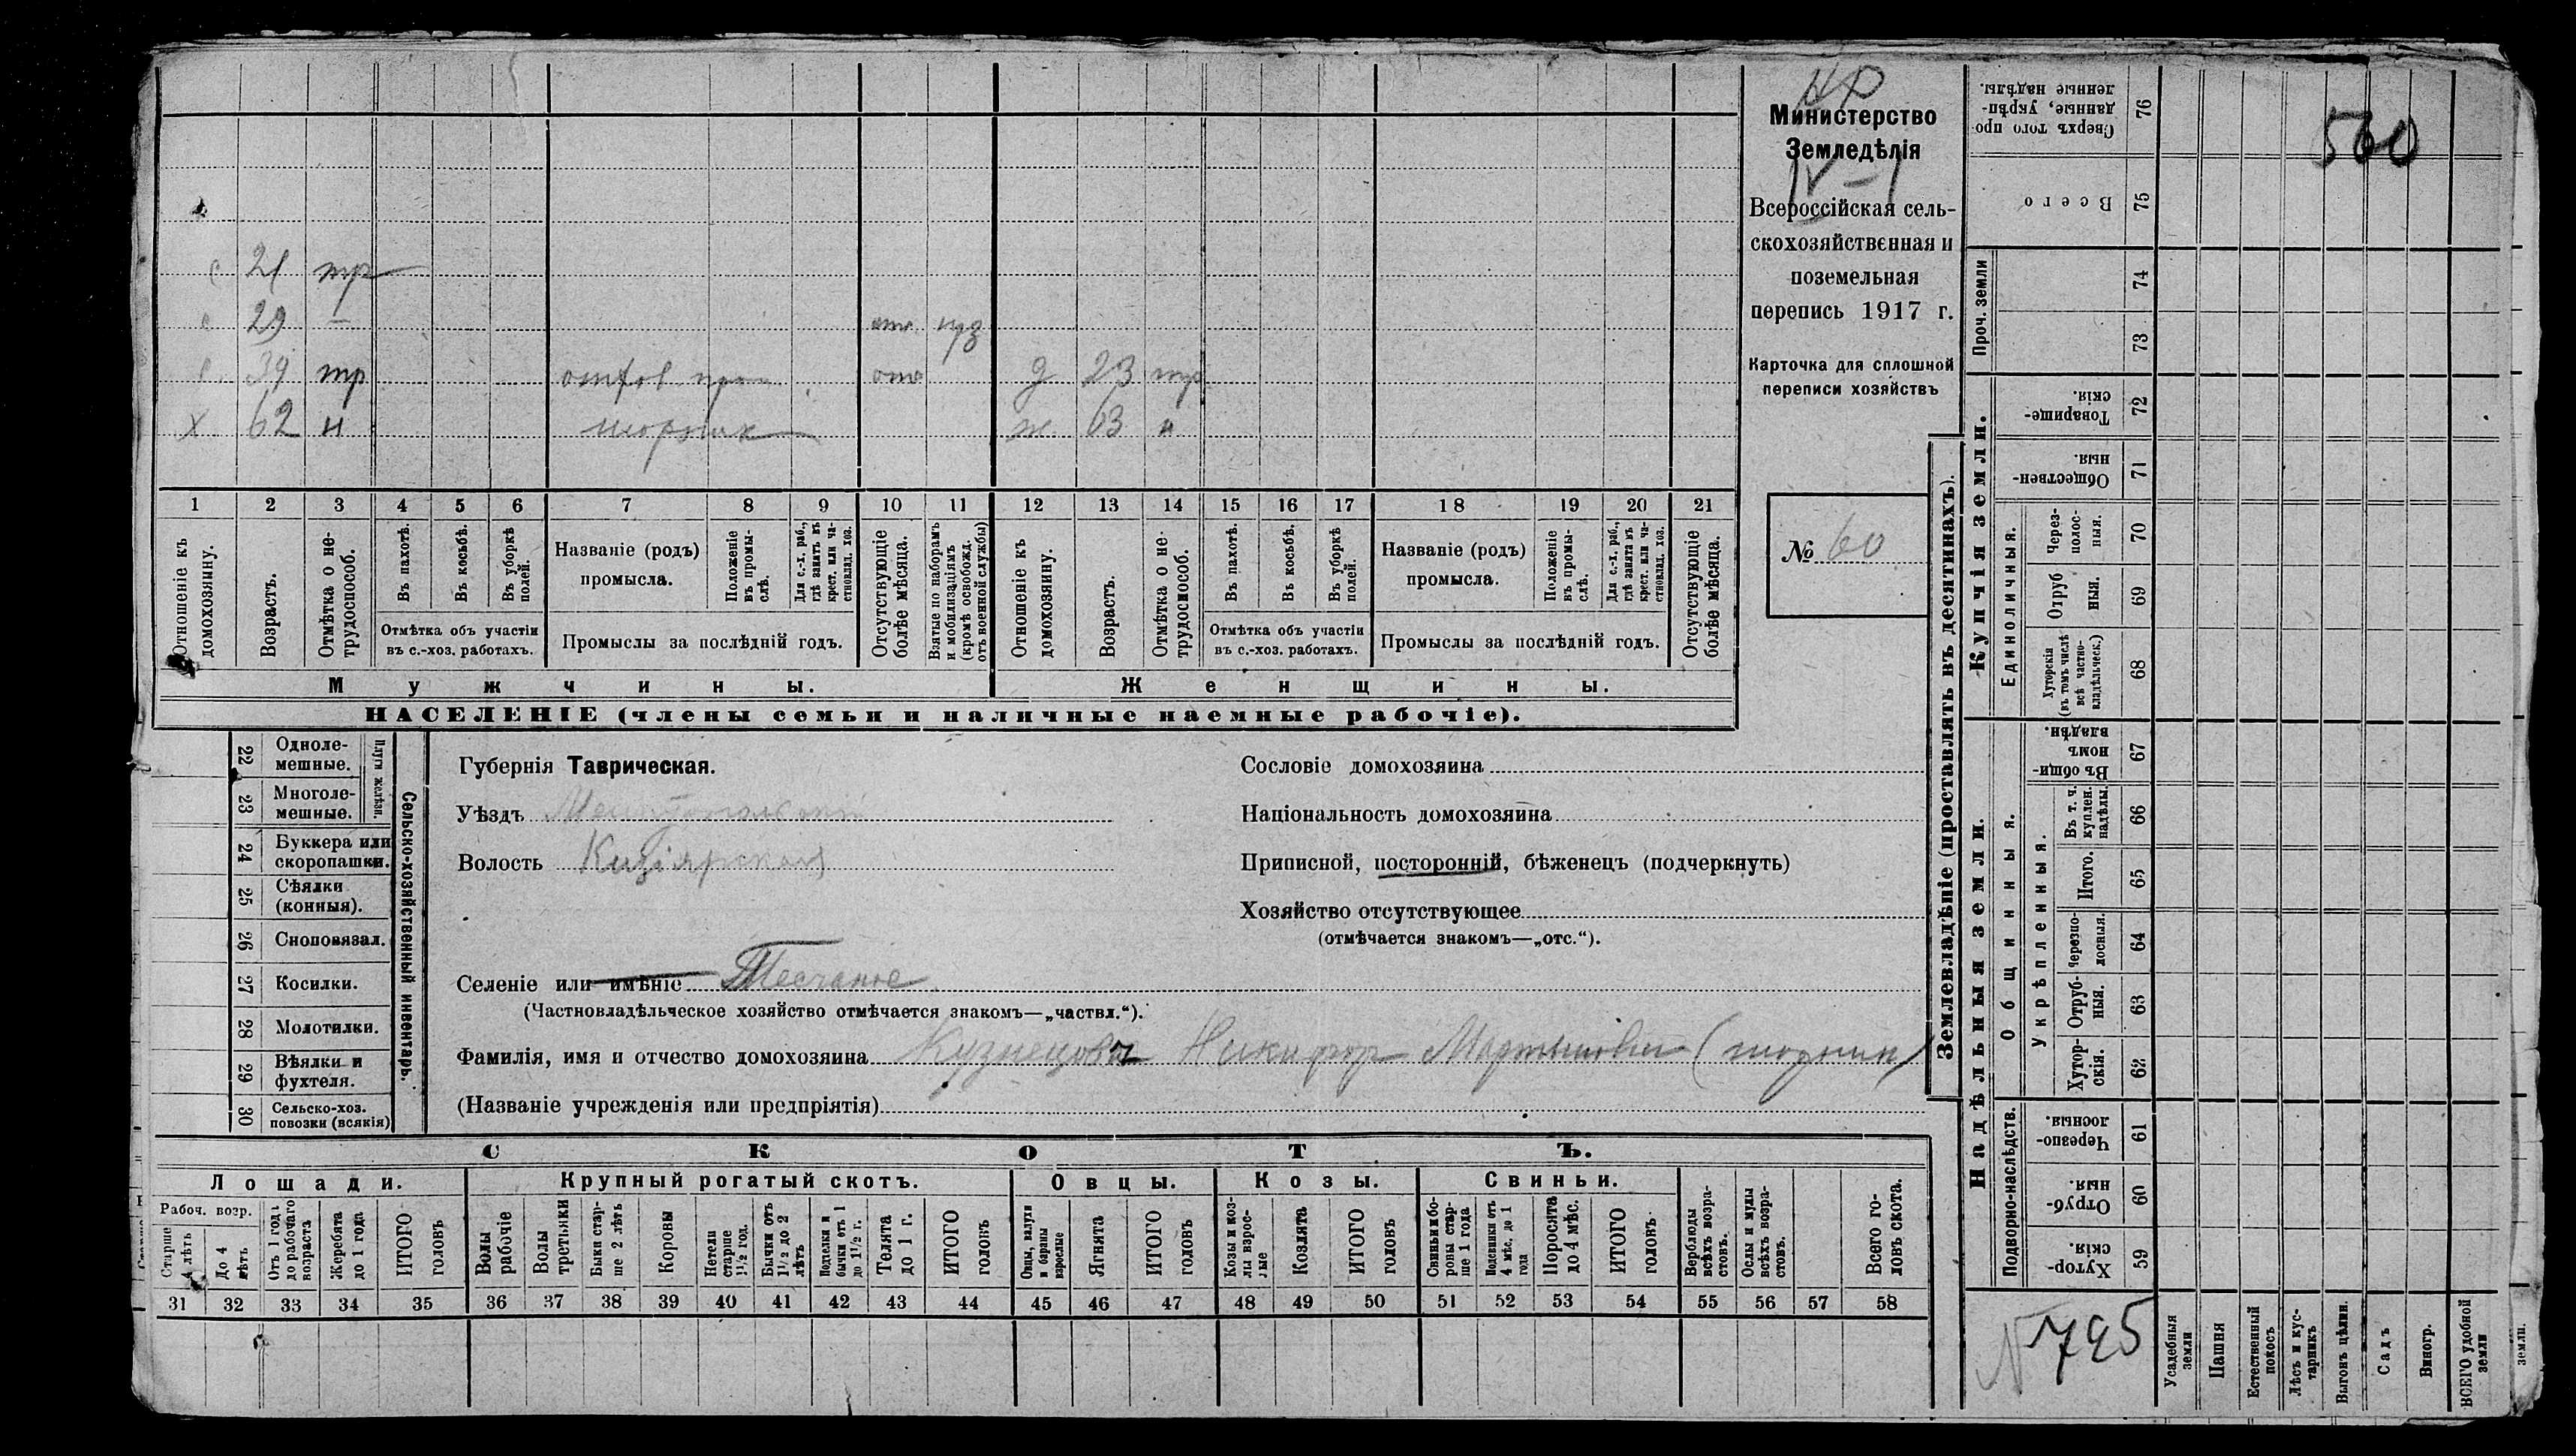 НР
Министерство
Земледѣлія
IV – 1
Всероссійская сель-
скохозяйственная и
поземельная
перепись 1917 г.
Карточка для сплошной
переписи хозяйствъ
№ 60
с 21 тр
с 29 – отс
с 39 тр отс д 23 тр
х 62 н шорник ж 63 н
1 2 3 4 5 6 7 8 9 10 11 12 13 14 15 16 17 18 19 20 21
Отношеніе къ домохозяину.
Возрастъ.
Отмѣтка о не-трудоспособ.
Въ пахотѣ.
Въ косьбѣ.
Въ уборкѣ полей.
Названіе (родъ) промысла.
Положеніе въ промы-слѣ.
Для с.-х. раб., гдѣ занятъ въ крест. или ча-стновлад. хоз.
Отсутствующіе болѣе мѣсяца.
Взятые по наборамъ и мобилизаціямъ (кромѣ освобожд. отъ военной службы)
Отношеніе къ домохозяину.
Возрастъ.
Отмѣтка о не-трудоспособ.
Въ пахотѣ.
Въ косьбѣ.
Въ уборкѣ полей.
Названіе (родъ) промысла.
Положеніе въ промы-слѣ.
Для с.-х. раб., гдѣ занята въ крест. или ча-стновлад. хоз.
Отсутствующіе болѣе мѣсяца.
Отмѣтка объ участіи въ с.-хоз. работахъ.
Промыслы за послѣдній годъ.
Отмѣтка объ участіи въ с.-хоз. работахъ.
Промыслы за послѣдній годъ.
Мужчины.
Женщины.
НАСЕЛЕНІЕ (члены семьи и наличные наемные рабочіе).
Сельско-хозяйственный инвентарь.
Плуги желѣзн.
22 Одноле-мешные.
23 Многоле-мешные.
24 Буккера или скоропашки.
25 Сѣялки (конныя).
26 Сноповязал.
27 Косилки.
28 Молотилки.
29 Вѣялки и фухтеля.
30 Сельско-хоз. повозки (всякія)
Губернія Таврическая.
Уѣздъ Мелитопольскій
Волость Кизіярская
Сословіе домохозяина
Національность домохозяина
Приписной, посторонній, бѣженецъ (подчеркнуть)
Хозяйство отсутствующее
(отмѣчается знакомъ—„отс.“).
Селеніе или имѣніе Песчаное
(Частновладѣльческое хозяйство отмѣчается знакомъ—„частвл.“).
Фамилія, имя и отчество домохозяина Кузнецовъ Никифор Мартынович (шорник)
(Названіе учрежденія или предпріятія)
СКОТЪ.
Лошади. Крупный рогатый скотъ. Овцы. Козы. Свиньи.
Рабоч. возр.
Старше 4 лѣтъ
До 4 лѣтъ
Отъ 1 года до рабочаго возраста
Жеребята до 1 года
ИТОГО головъ
Волы рабочіе
Волы третьяки
Быки стар-ше 2 лѣтъ
Коровы
Нетели старше 1½ год.
Бычки отъ 1½ до 2 лѣтъ
Подтелки и бычки отъ 1 до 1½ г.
Телята до 1 г.
ИТОГО головъ
Овцы, валухи и бараны взрослые
Ягнята
ИТОГО головъ
Козы и коз-лы взрос-лые
Козлята
ИТОГО головъ
Свиньи и бо-ровы стар-ше 1 года
Подсвинки отъ 4 мѣс. до 1 года
Поросята до 4 мѣс.
ИТОГО головъ
Верблюды всѣхъ возра-стовъ.
Ослы и мулы всѣхъ возра-стовъ.
Всего го-ловъ скота.
31 32 33 34 35 36 37 38 39 40 41 42 43 44 45 46 47 48 49 50 51 52 53 54 55 56 57 58
Землевладѣніе (проставлять въ десятинахъ).
Надѣльныя земли.
Купчія земли.
Проч. земли
Подворно-наслѣдств.
Общинныя.
Укрѣпленныя.
Единоличныя.
76 Сверхъ того про-данные, укрѣп-ленные надѣлы.
75 Всего
74
73
72 Товарище-скія.
71 Обществен-ныя.
70 Через-полос-ныя.
69 Отруб-ныя.
68 Хуторскія (въ томъ числѣ всѣ частно-владѣльческ.)
67 Въ общи-номъ владѣн.
66 Въ т. ч. куплен. надѣлы.
65 Итого.
64 Черезпо-лосныя.
63 Отруб-ныя.
62 Хутор-скія.
61 Черезпо-лосныя
60 Отруб-ныя.
59 Хутор-скія.
Усадебныя земли
Пашня
Естественный покосъ
Лѣсъ и кус-тарникъ
Выгонъ цѣлин.
Садъ
Виногр.
ВСЕГО удобной земли
земли.
560
N 795